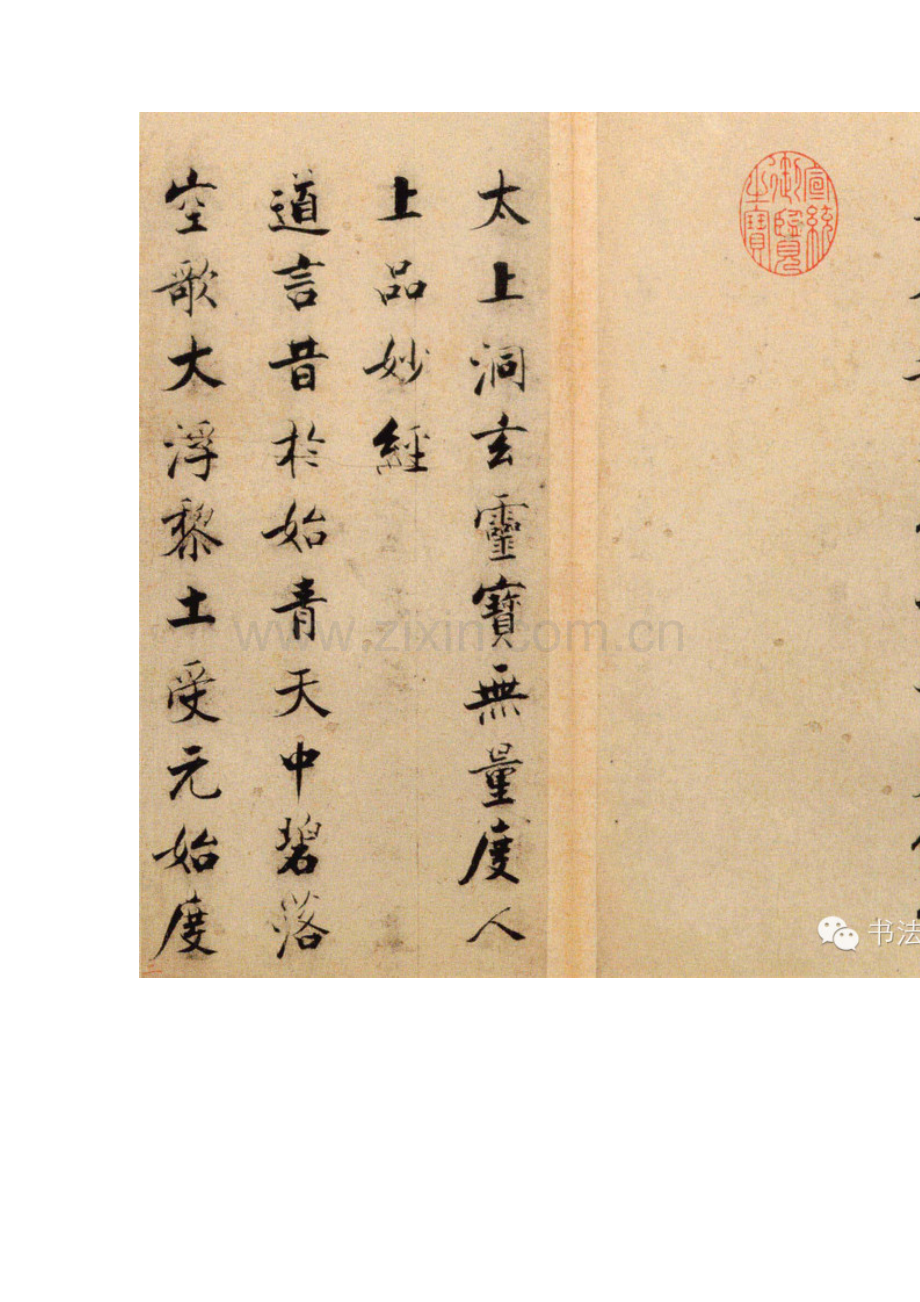 宣統
御覽
之寶
太上洞玄靈寶無量度人
上品妙經
道言昔於始青天中碧落
空歌大浮黎土受元始度
www.zixin.com.cn
书法